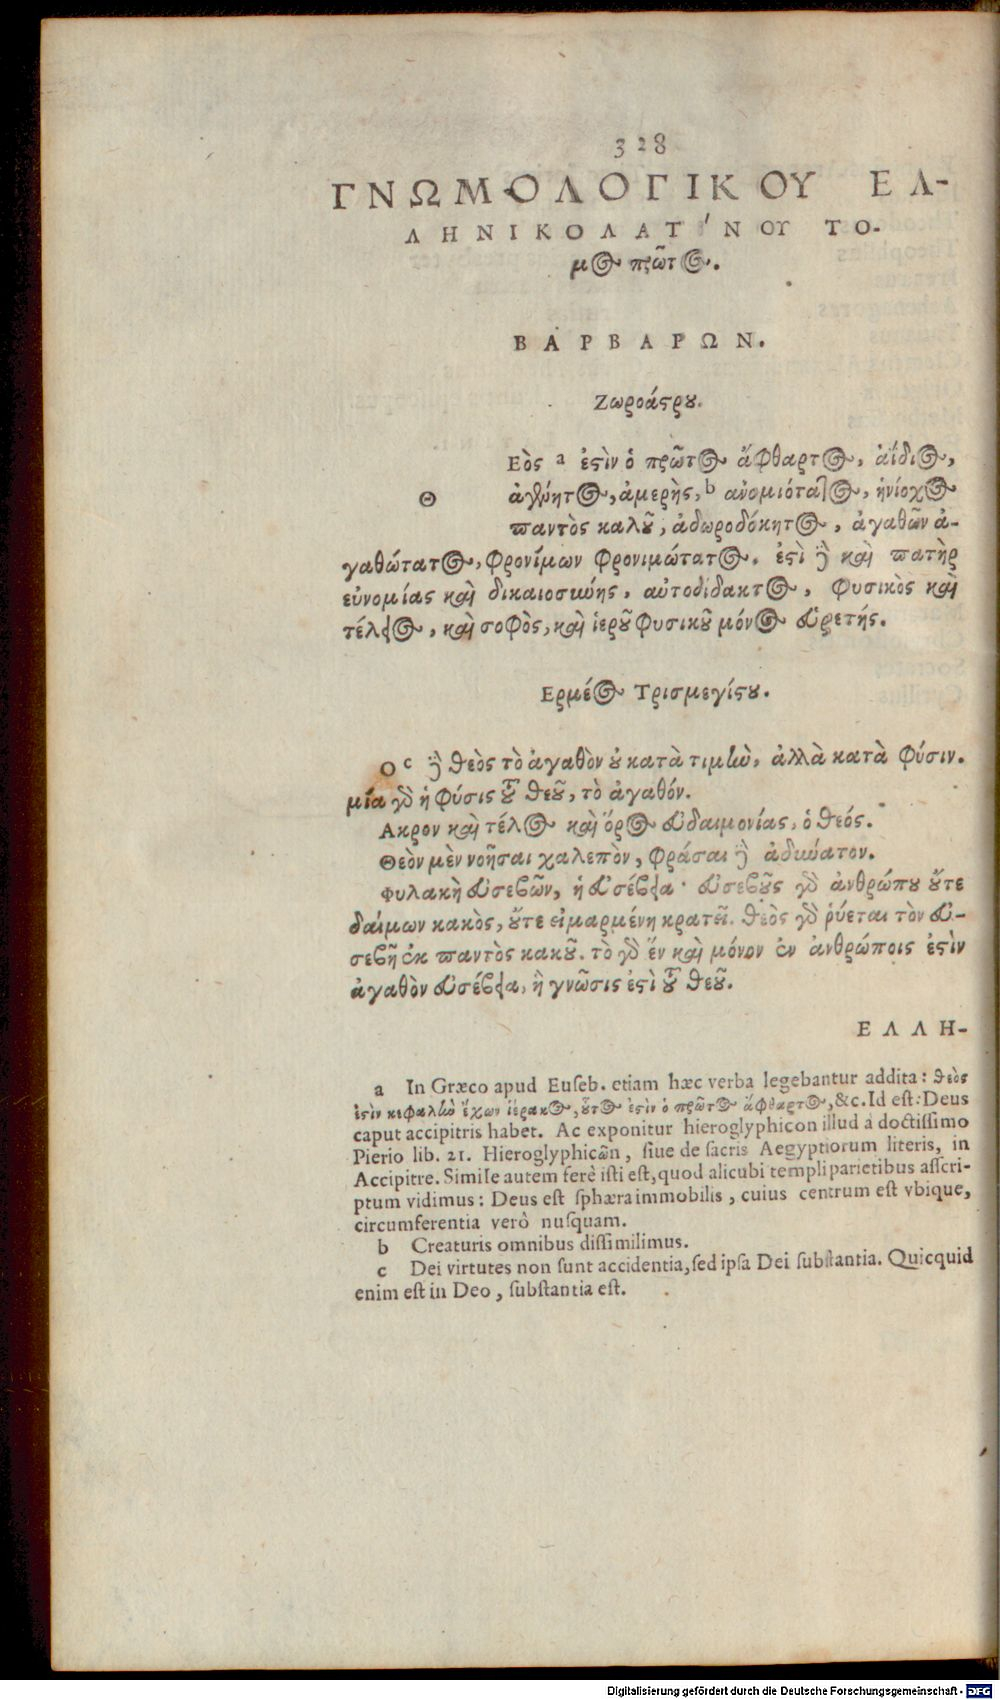 328
ΓΝΩΜΟΛΟΓΙΚΟΥ ΕΛ-
ΛΗΝΙΚΟΛΑΤΊΝΟΥ ΤΟ-
μος πρῶτος.
ΒΑΡΒΑΡΩΝ.
Ζωροάστρου.
Θεὸς a ἐστὶν ὁ πρῶτος ἄφθαρτος, ἀΐδιος,
ἀγένητος, ἀμερὴς, b ἀνομιότατος, ἡνίοχος
παντὸς καλοῦ, ἀδωροδόκητος, ἀγαθῶν ἀ-
γαθώτατος, φρονίμων φρονιμώτατος. ἐστὶ δὲ καὶ πατὴρ
εὐνομίας καὶ δικαιοσύνης, αὐτοδίδακτος, φυσικὸς καὶ
τέλειος, καὶ σοφὸς, καὶ ἱεροῦ φυσικοῦ μόνος εὑρετής.
Ερμέος Τρισμεγίστου.
Ο c δὲ θεὸς τὸ ἀγαθὸν οὐ κατὰ τιμὴν, ἀλλὰ κατὰ φύσιν.
μία γὰρ ἡ φύσις τοῦ θεοῦ, τὸ ἀγαθόν.
Ακρον καὶ τέλος καὶ ὅρος εὐδαιμονίας, ὁ θεός.
Θεὸν μὲν νοῆσαι χαλεπὸν, φράσαι δὲ ἀδύνατον.
Φυλακὴ εὐσεβῶν, ἡ εὐσέβεια· εὐσεβοῦς γὰρ ἀνθρώπου οὔτε
δαίμων κακὸς, οὔτε εἱμαρμένη κρατεῖ. θεὸς γὰρ ῥύεται τὸν εὐ-
σεβῆ ἐκ παντὸς κακοῦ. τὸ γὰρ ἕν καὶ μόνον ἐν ἀνθρώποις ἐστὶν
ἀγαθὸν εὐσέβεια, ἢ γνῶσις ἐστὶ τοῦ θεοῦ.
ΕΛΛΗ-
a In Græco apud Euseb. etiam hæc verba legebantur addita: θεὸς
ἐστὶν κεφαλὴν ἔχων ἱέρακος, οὗτος ἐστὶν ὁ πρῶτος ἄφθαρτος, &c. Id est: Deus
caput accipitris habet. Ac exponitur hieroglyphicon illud à doctissimo
Pierio lib. 21. Hieroglyphicῶn, siue de sacris Aegyptiorum literis, in
Accipitre. Simile autem ferè isti est, quod alicubi templi parietibus ascri-
ptum vidimus: Deus est sphæra immobilis, cuius centrum est vbique,
circumferentia verò nusquam.
b Creaturis omnibus dissimilimus.
c Dei virtutes non sunt accidentia, sed ipsa Dei substantia. Quicquid
enim est in Deo, substantia est.
Digitalisierung gefördert durch die Deutsche Forschungsgemeinschaft - DFG